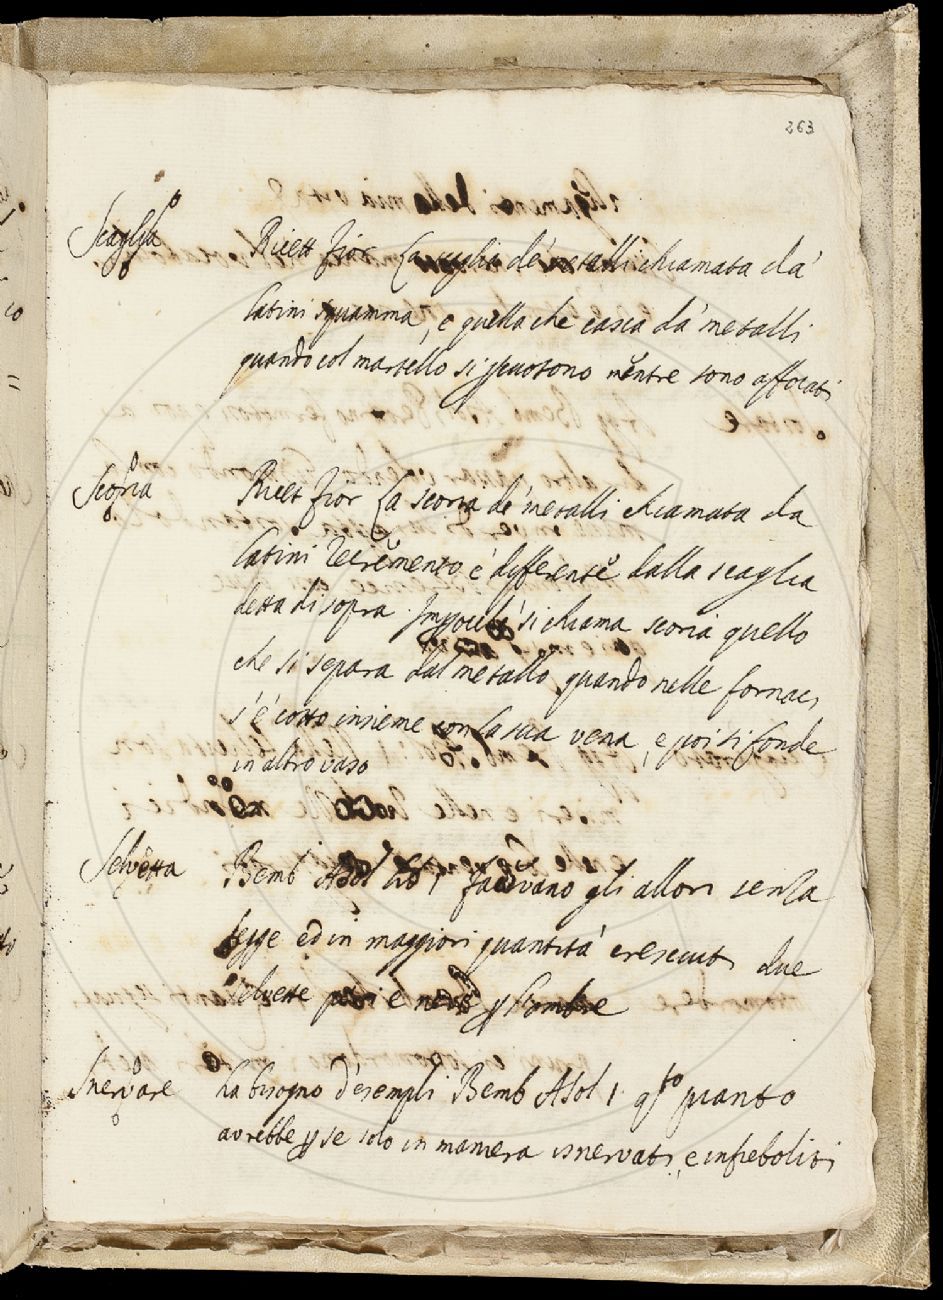 263
Scaglia Ricett Fior La scaglia de' metalli chiamata da'
latini squamma, e quella che casca da' metalli
quando col martello si percotono mentre sono affocati
Scoria Ricet Fior La scoria de' metalli chiamata da
latini recremento e' differente dalla scaglia
detta di sopra. Impoche' si chiama scoria quello
che si separa dal metallo quando nelle fornaci
s' e' cotto insieme con la sua vena, e poi si fonde
in altro vaso
Selvetta Bemb Asol lib 1 facevano gli allori senza
legge ed in maggiori quantita' cresciuti due
selvette pari e nere p l'ombre
Snervare ha bisogno d'esempli Bemb Asol 1 qto quanto
avrebbe p se solo in maniera isnervati, e infieboliti